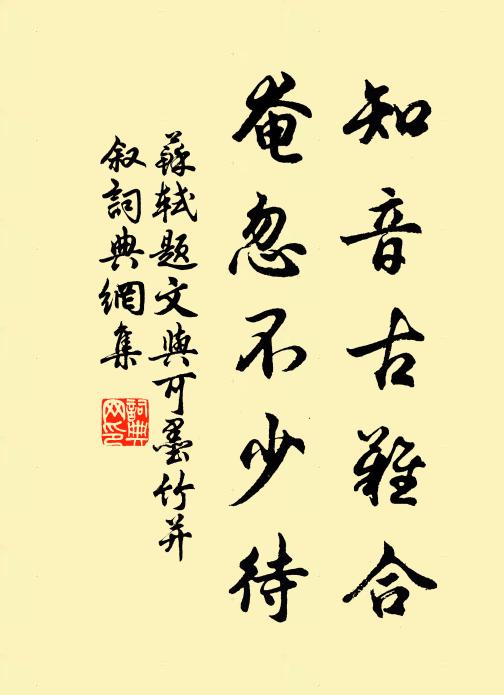 知音古難合
奄忽不少待
蘇軾題文與可墨竹并
叙詞典網集
詞典
网印